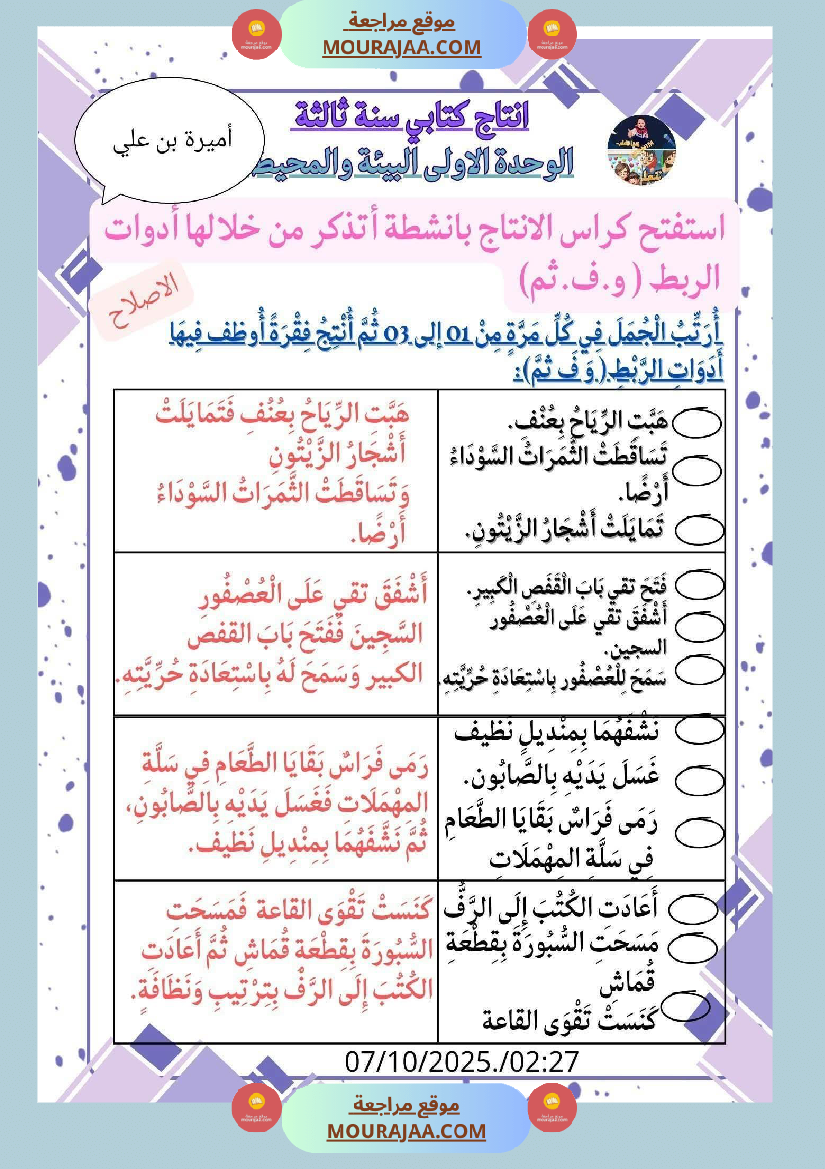 موقع مراجعة
MOURAJAA.COM
أميرة بن علي
انتاج كتابي سنة ثالثة
الوحدة الاولى البيئة والمحيط
استفتح كراس الانتاج بانشطة أتذكر من خلالها أدوات
الربط ( و.ف.ثم)
الاصلاح
أُرَتِّبُ الْجُمَلَ فِي كُلِّ مَرَّةٍ مِنْ 01 إلى 03 ثُمَّ أُنْتِجُ فِقْرَةً أُوظف فِيهَا
أَدَوَاتِ الرَّبْطِ(وَ فَ ثمَّ):
هَبَّتِ الرِّيَاحُ بِعُنْفٍ.
تَسَاقَطَتْ الثَّمَرَاتُ السَّوْدَاءُ
أَرْضًا.
تَمَايَلَتْ أَشْجَارُ الزَّيْتُونِ.
هَبَّتِ الرِّيَاحُ بِعُنُفِ فَتَمَايَلَتْ
أَشْجَارُ الزَّيْتُونِ
وَتَسَاقَطَتْ الثَّمَرَاتُ السَّوْدَاءُ
أَرْضًا.
فَتَحَ تقي بَابَ الْقَفَصِ الْكَبِيرِ.
أَشْفَقَ تقي عَلَى الْعُصْفُور
السجين.
سَمَحَ لِلْعُصْفُور بِاسْتِعَادَةِ حُرِّيَّتِهِ.
أَشْفَقَ تقي عَلَى الْعُصْفُورِ
السَّجِينَ فَفَتَحَ بَابَ القفص
الكبير وَسَمَحَ لَهُ بِاسْتِعَادَةِ حُرِّيَّتِهِ.
نَشْفَهُمَا بِمِنْدِيلٍ نَظيف
غَسَلَ يَدَيْهِ بِالصَّابُون.
رَمَى فَرَاسٌ بَقَايَا الطَّعَامِ
فِي سَلَّةِ المِهْمَلَاتِ
رَمَى فَرَاسٌ بَقَايَا الطَّعَامِ فِي سَلَّةِ
المِهْمَلَاتِ فَغَسَلَ يَدَيْهِ بِالصَّابُونِ،
ثُمَّ نَشَّفَهُمَا بِمِنْدِيلِ نَظِيف.
أَعَادَتِ الكُتُبَ إِلَى الرَّفِّ
مَسَحَتِ السُّبُورَةَ بِقِطْعَةِ
قُمَاشِ
كَنَسَتْ تَقْوَى القاعة
كَنَسَتْ تَقْوَى القاعة فَمَسَحَتِ
السُّبُورَةَ بِقِطْعَة قُمَاشِ ثُمَّ أَعَادَتِ
الكُتُبَ إِلَى الرَّفِّ بِتِرْتِيبِ وَنَظَافَةٍ.
07/10/2025./02:27
موقع مراجعة
MOURAJAA.COM